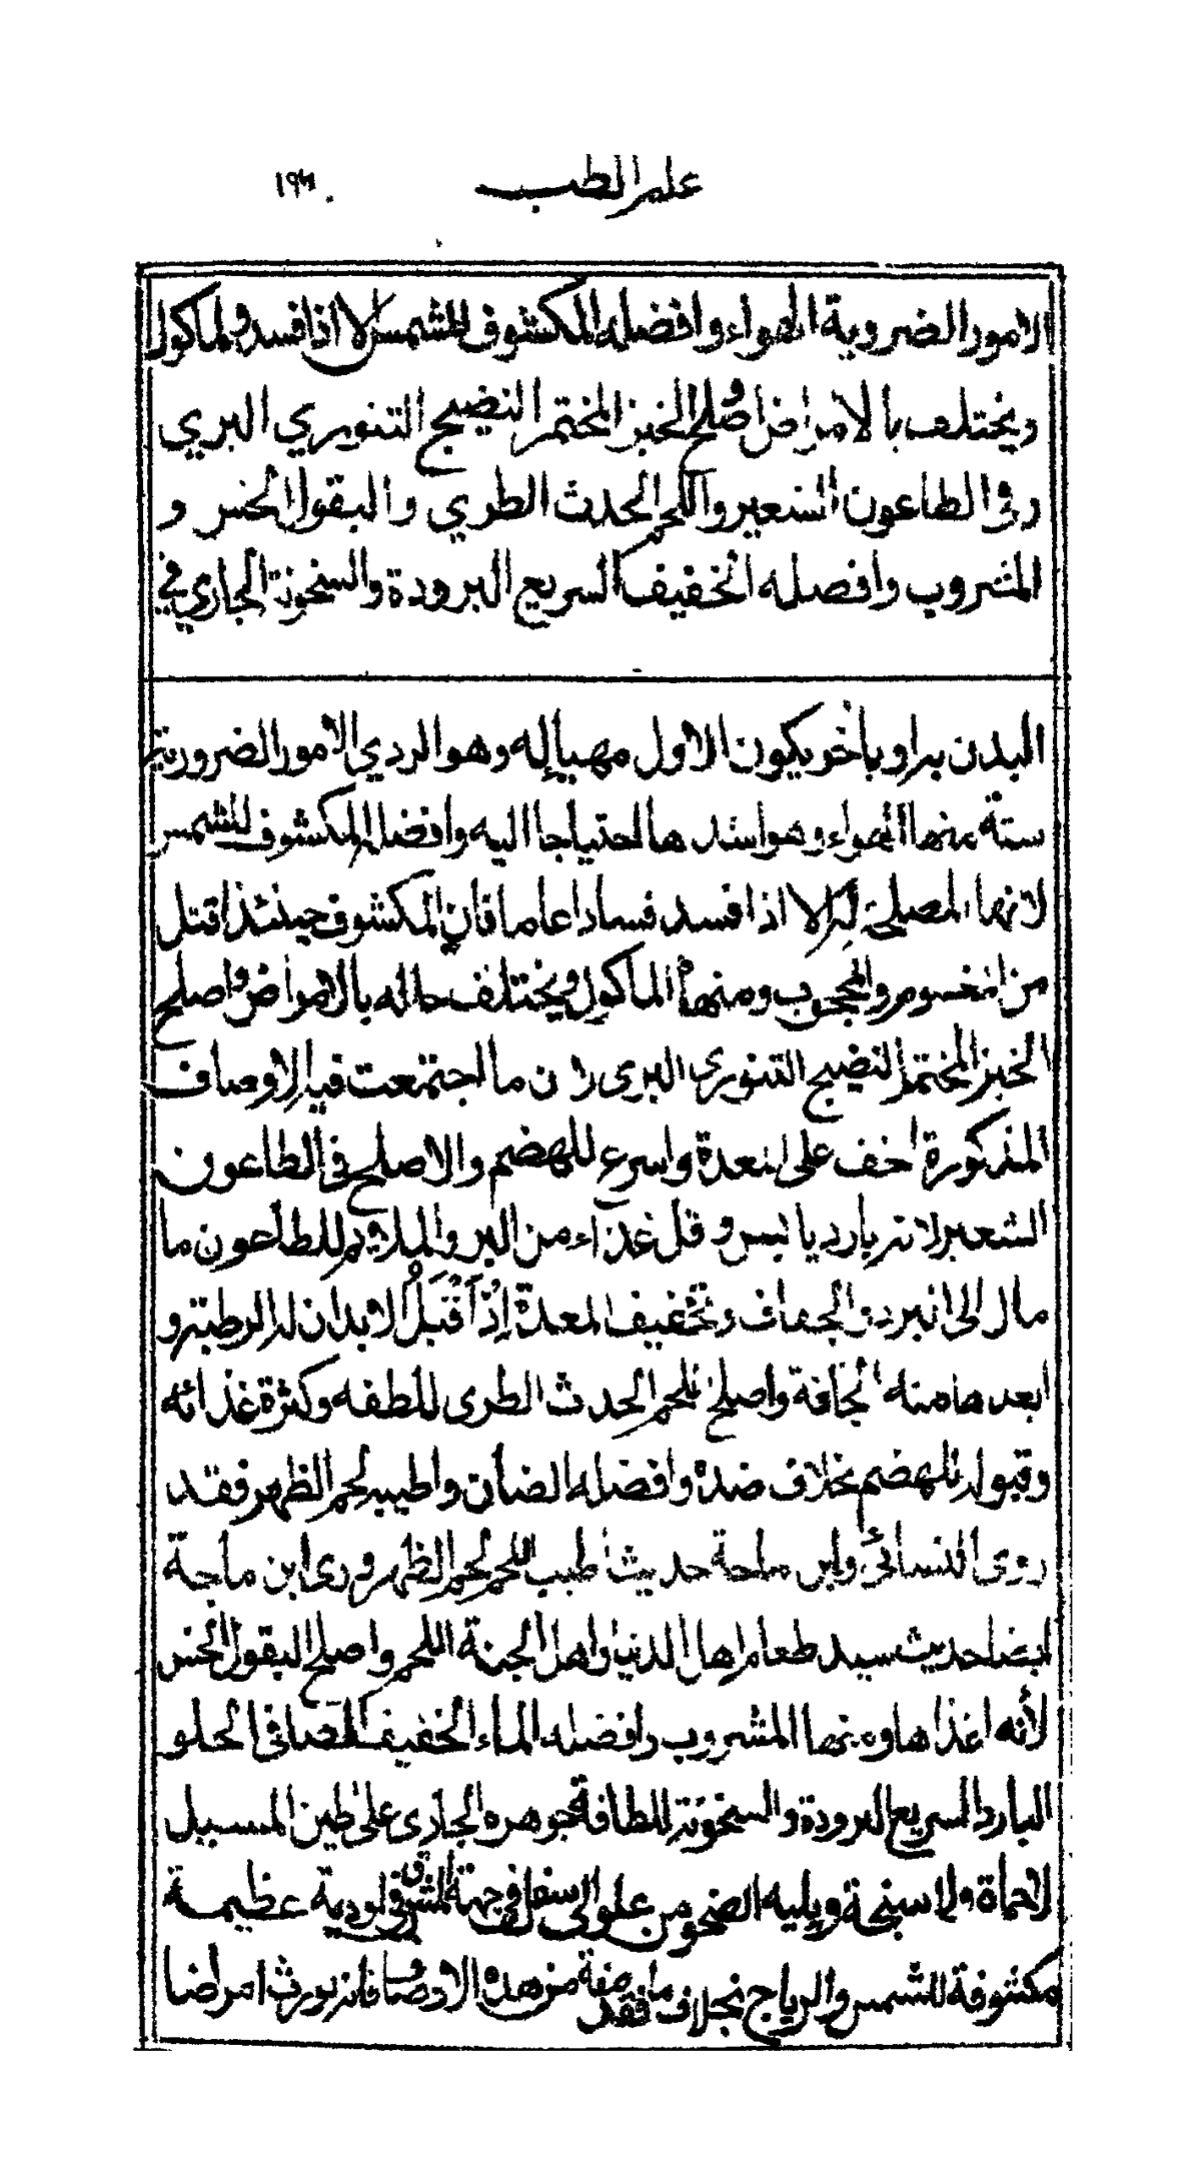 علم الطب
الامور الضروية الهواء وافضله المكشوف للشمس الا اذا فسد والماكول
ويختلف بالامراض واصلح الخبز المختمر النضيج التنوري البري
وفى الطاعون الشعير واللحم الحدث الطري والبقول الخس و
المشروب وافضله الخفيف السريع البرودة والسخونة الجاري في
البدن بها وباخر يكون الاول مهيأ له وهو الردي الامور الضرورية
ستة منها الهواء وهو اشدها احتياجا اليه وافضله المكشوف للشمس
لانها المصلحة له الا اذا فسد فسادا عاما فان المكشوف حينئذ اقتل
من المغموم والمحجوب ومنها الماكول ويختلف حاله بالامراض واصلح
الخبز المختمر النضيج التنورى البرى لان ما اجتمعت فيه الاوصاف
المذكورة اخف على المعدة واسرع للهضم والاصلح فى الطاعون
الشعير لانه بارد يابس وقل غذاء من البر والملايم للطاعون ما
مال الى البرد والجفاف وتخفيف المعدة إذ أقبل الابدان له الرطبة و
ابعدها منه الجافة واصلح اللحم الحدث الطرى للطفه وكثرة غذائه
وقبوله للهضم بخلاف ضده وافضله الضأن واطيبه لحم الظهر فقد
روى النسائي وابن ماجة حديث اطيب اللحم لحم الظهر وروى ابن ماجة
ايضا حديث سيد طعام اهل الدنيا واهل الجنة اللحم واصلح البقول الخس
لأنه اغذاها ومنها المشروب وافضله الماء الخفيف الصافى الحلو
البارد السريع البرودة والسخونة للطافة جوهره الجارى على طين المسيل
لا حماة ولا سبخة ويليه الصخر من علو الى اسفل فى جهة الشرق فى اودية عظيمة
مكشوفة للشمس والرياح بخلاف ما فقد صفة من هذه الاوصاف فانه يورث امراضا